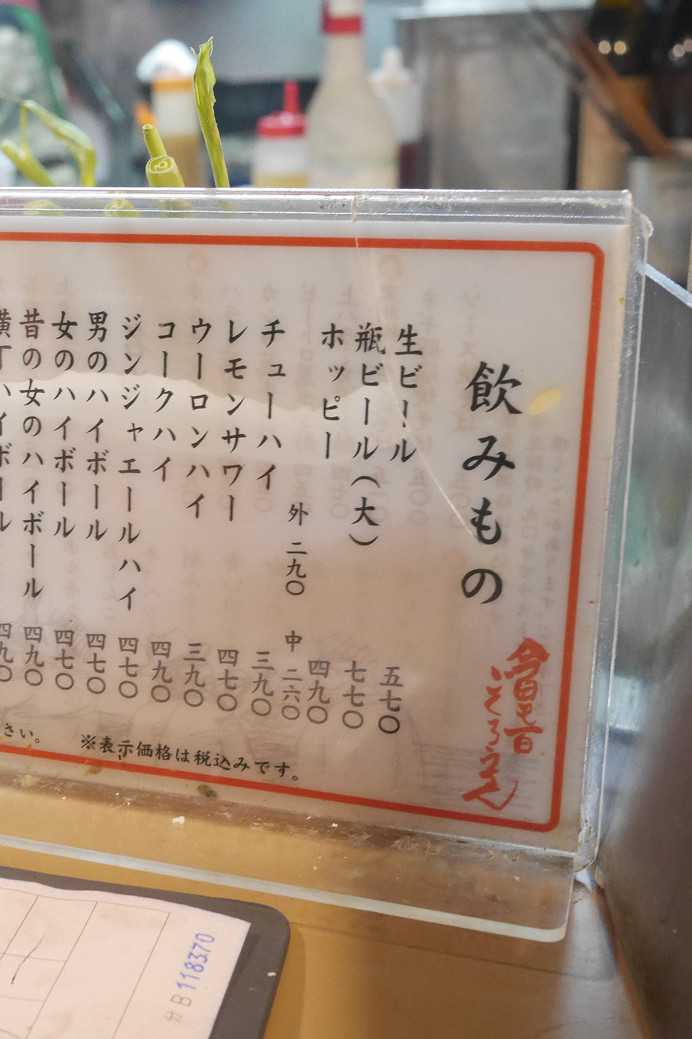 飲みもの
生ビール 五七〇
瓶ビール(大) 七七〇
ホッピー 四九〇
外 二九〇 中 二六〇
チューハイ 三九〇
レモンサワー 四七〇
ウーロンハイ 三九〇
コークハイ 四九〇
ジンジャエールハイ 四七〇
男のハイボール 四七〇
女のハイボール 四七〇
昔の女のハイボール 四九〇
横丁ハイボール 四九〇
※表示価格は税込みです。
さい。
分 B 118370